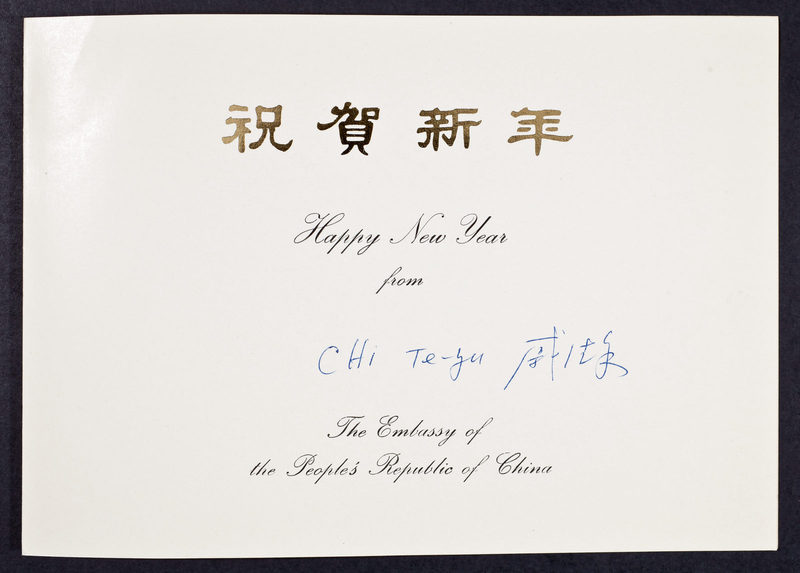 祝賀新年
Happy New Year
from
CHi Te-yu 戚德
The Embassy of
the People's Republic of China